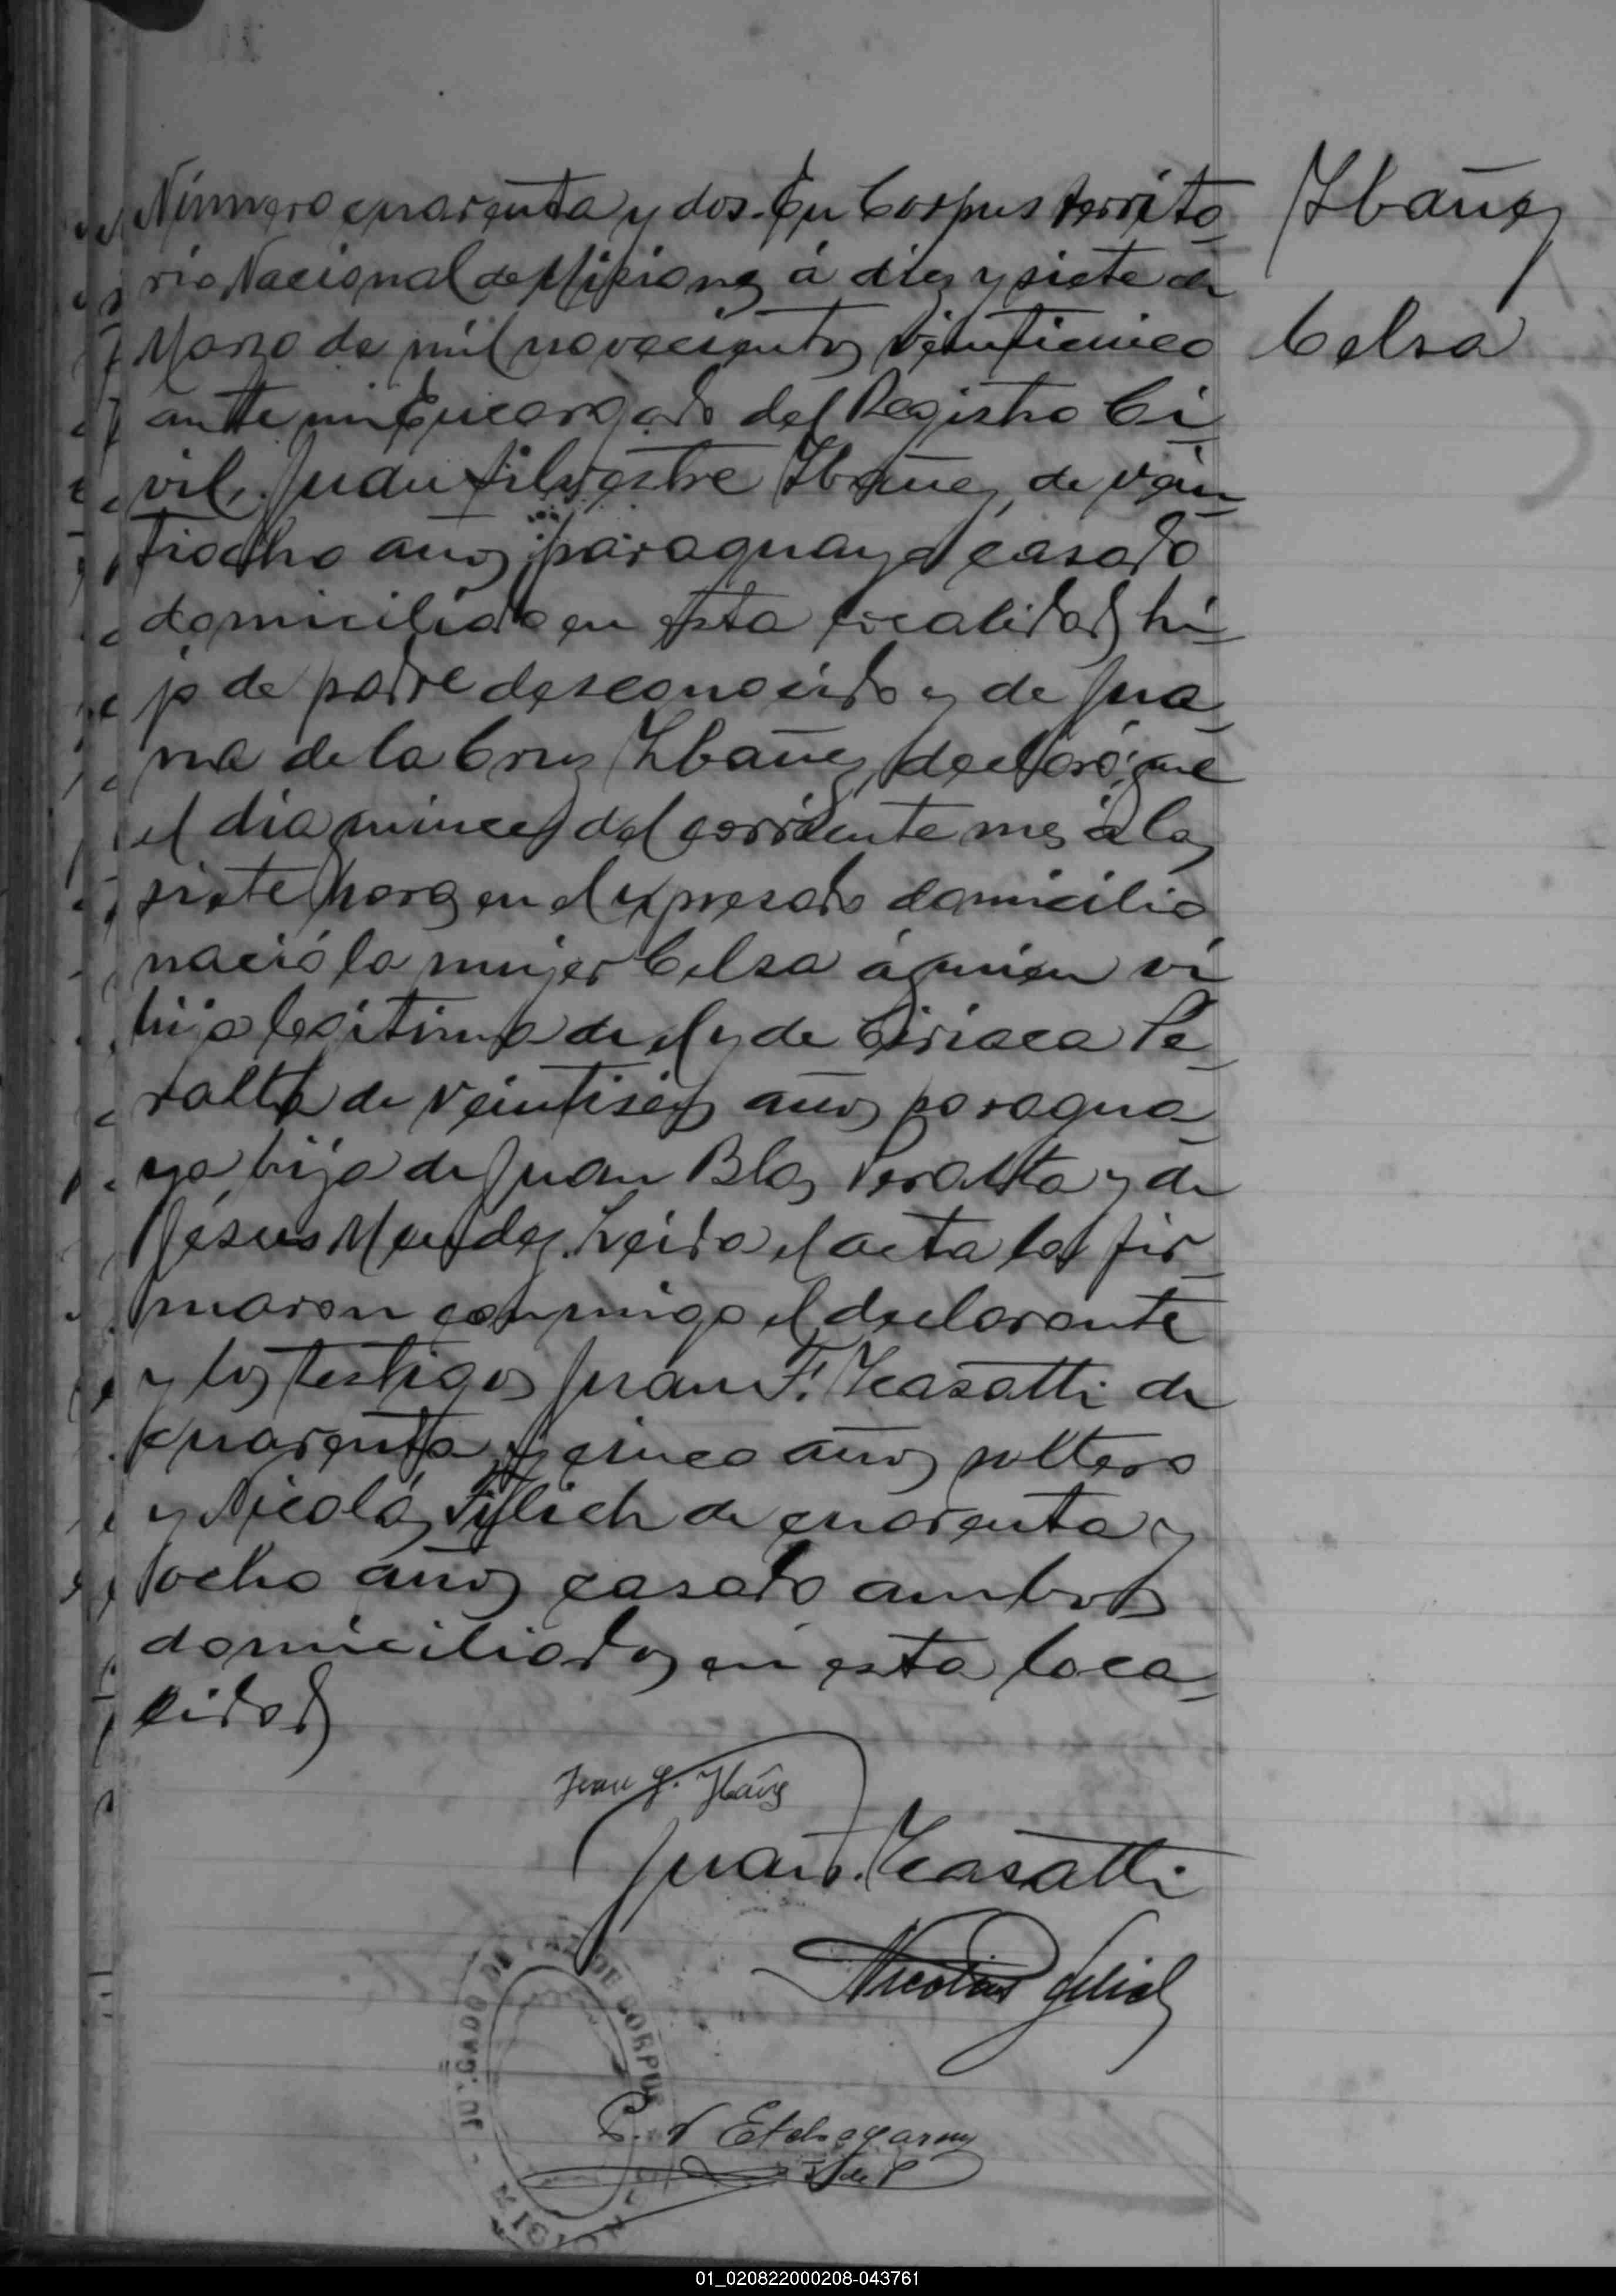 Número cuarenta y dos. En Corpus territo-
rio Nacional de Misiones á diez y siete de
Marzo de mil novecientos veinticinco
ante mi Encargado del Registro Ci-
vil, Juan Silvestre Ibañez, de vein-
tiocho años paraguayo casado
domiciliado en esta localidad, hi-
jo de padre desconocido y de Jua-
na de la Cruz Ibañez, declaró: que
el dia quince del corriente mes á las
siete horas en el expresado domicilio
nació la mujer Celsa á quien vi
hija legitima de el y de Ciriaca Pe-
ralta de veintiseis años paragua-
ya hija de Juan Blas Peralta y de
Jesús Mendez. Leida el acta la fir-
maron conmigo el declarante
y los testigos Juan F. Casatti de
cuarenta y cinco años soltero
y Nicolás Filich de cuarenta y
ocho años casado ambos
domiciliados en esta loca-
lidad
Ibañez
Celsa
Juan S. Ibañez
Juan F. Casatti
Nicolas
Etchegaray
J de P
JUZGADO DE PAZ DE CORPUS
01_020822000208-043761